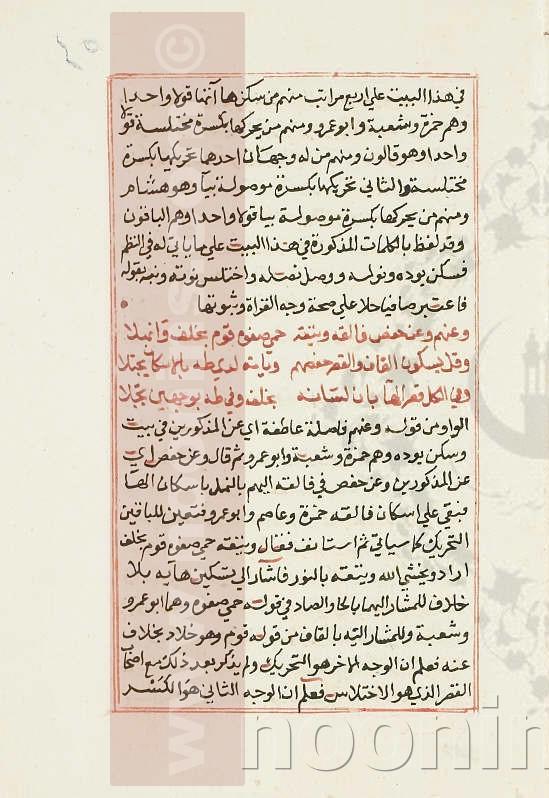 في هذا البيت علي اربع مراتب منهم من سكن هاآتها قولا واحدا
وهم حمزة وشعبة وابو عمرو ومنهم من يحركها بكسرة مختلسة قولا
واحدا وهو قالون ومنهم من له وجهان احدهما تحريكها بكسرة
مختلسة والثاني تحريكها بكسرة موصولة بياء وهو هشام
ومنهم من يحركها بكسرة موصولة بيا قولا واحدا وهم الباقون
وقد لفظ بالكلمات المذكورة في هذا البيت علي ما ياتي له في النظم
فسكن يوده ونوله ووصل نصله واختلس نوته ونبه بقوله
فاعتبر صافيا حلا علي صحة وجه القراة وثبوتها
وعنهم وعن حفص فالقه ويتقه حمي صفوه قوم بخلف وانهلا
وقل بسكون القاف والقصر حفصهم وياته لدي طه بالاسكان يجتلا
وفي الكل قصر الها بان لسانه بخلف وفي طه بوجهين بجلا
الواو من قوله وعنهم فاصلة عاطفة اي عن المذكورين في بيت
وسكن يوده وهم حمزة وشعبة وابو عمرو ثم قال وعن حفص اي
عن المذكورين وعن حفص في فالقه اليهم بالنمل باسكان الها
فبقي علي اسكان فالقه حمزة وعاصم وابو عمرو فتعين للباقين
التحريك كما سياتي ثم استانف فقال ويتقه حمي صفوه قوم بخلف
اراد ويخشي الله ويتقه بالنور فاشار الي تسكين هايه بلا
خلاف للمشار اليهما بالحا والصاد في قوله حمي صفوه وهما ابو عمرو
وشعبة وللمشار اليه بالقاف من قوله قوم وهو خلاد بخلاف
عنه فعلم ان الوجه الاخر هو التحريك ولم يذكر بعد ذلك مع اصحاب
القصر الذي هو الاختلاس فعلم ان الوجه الثاني هو الكسر
noorin